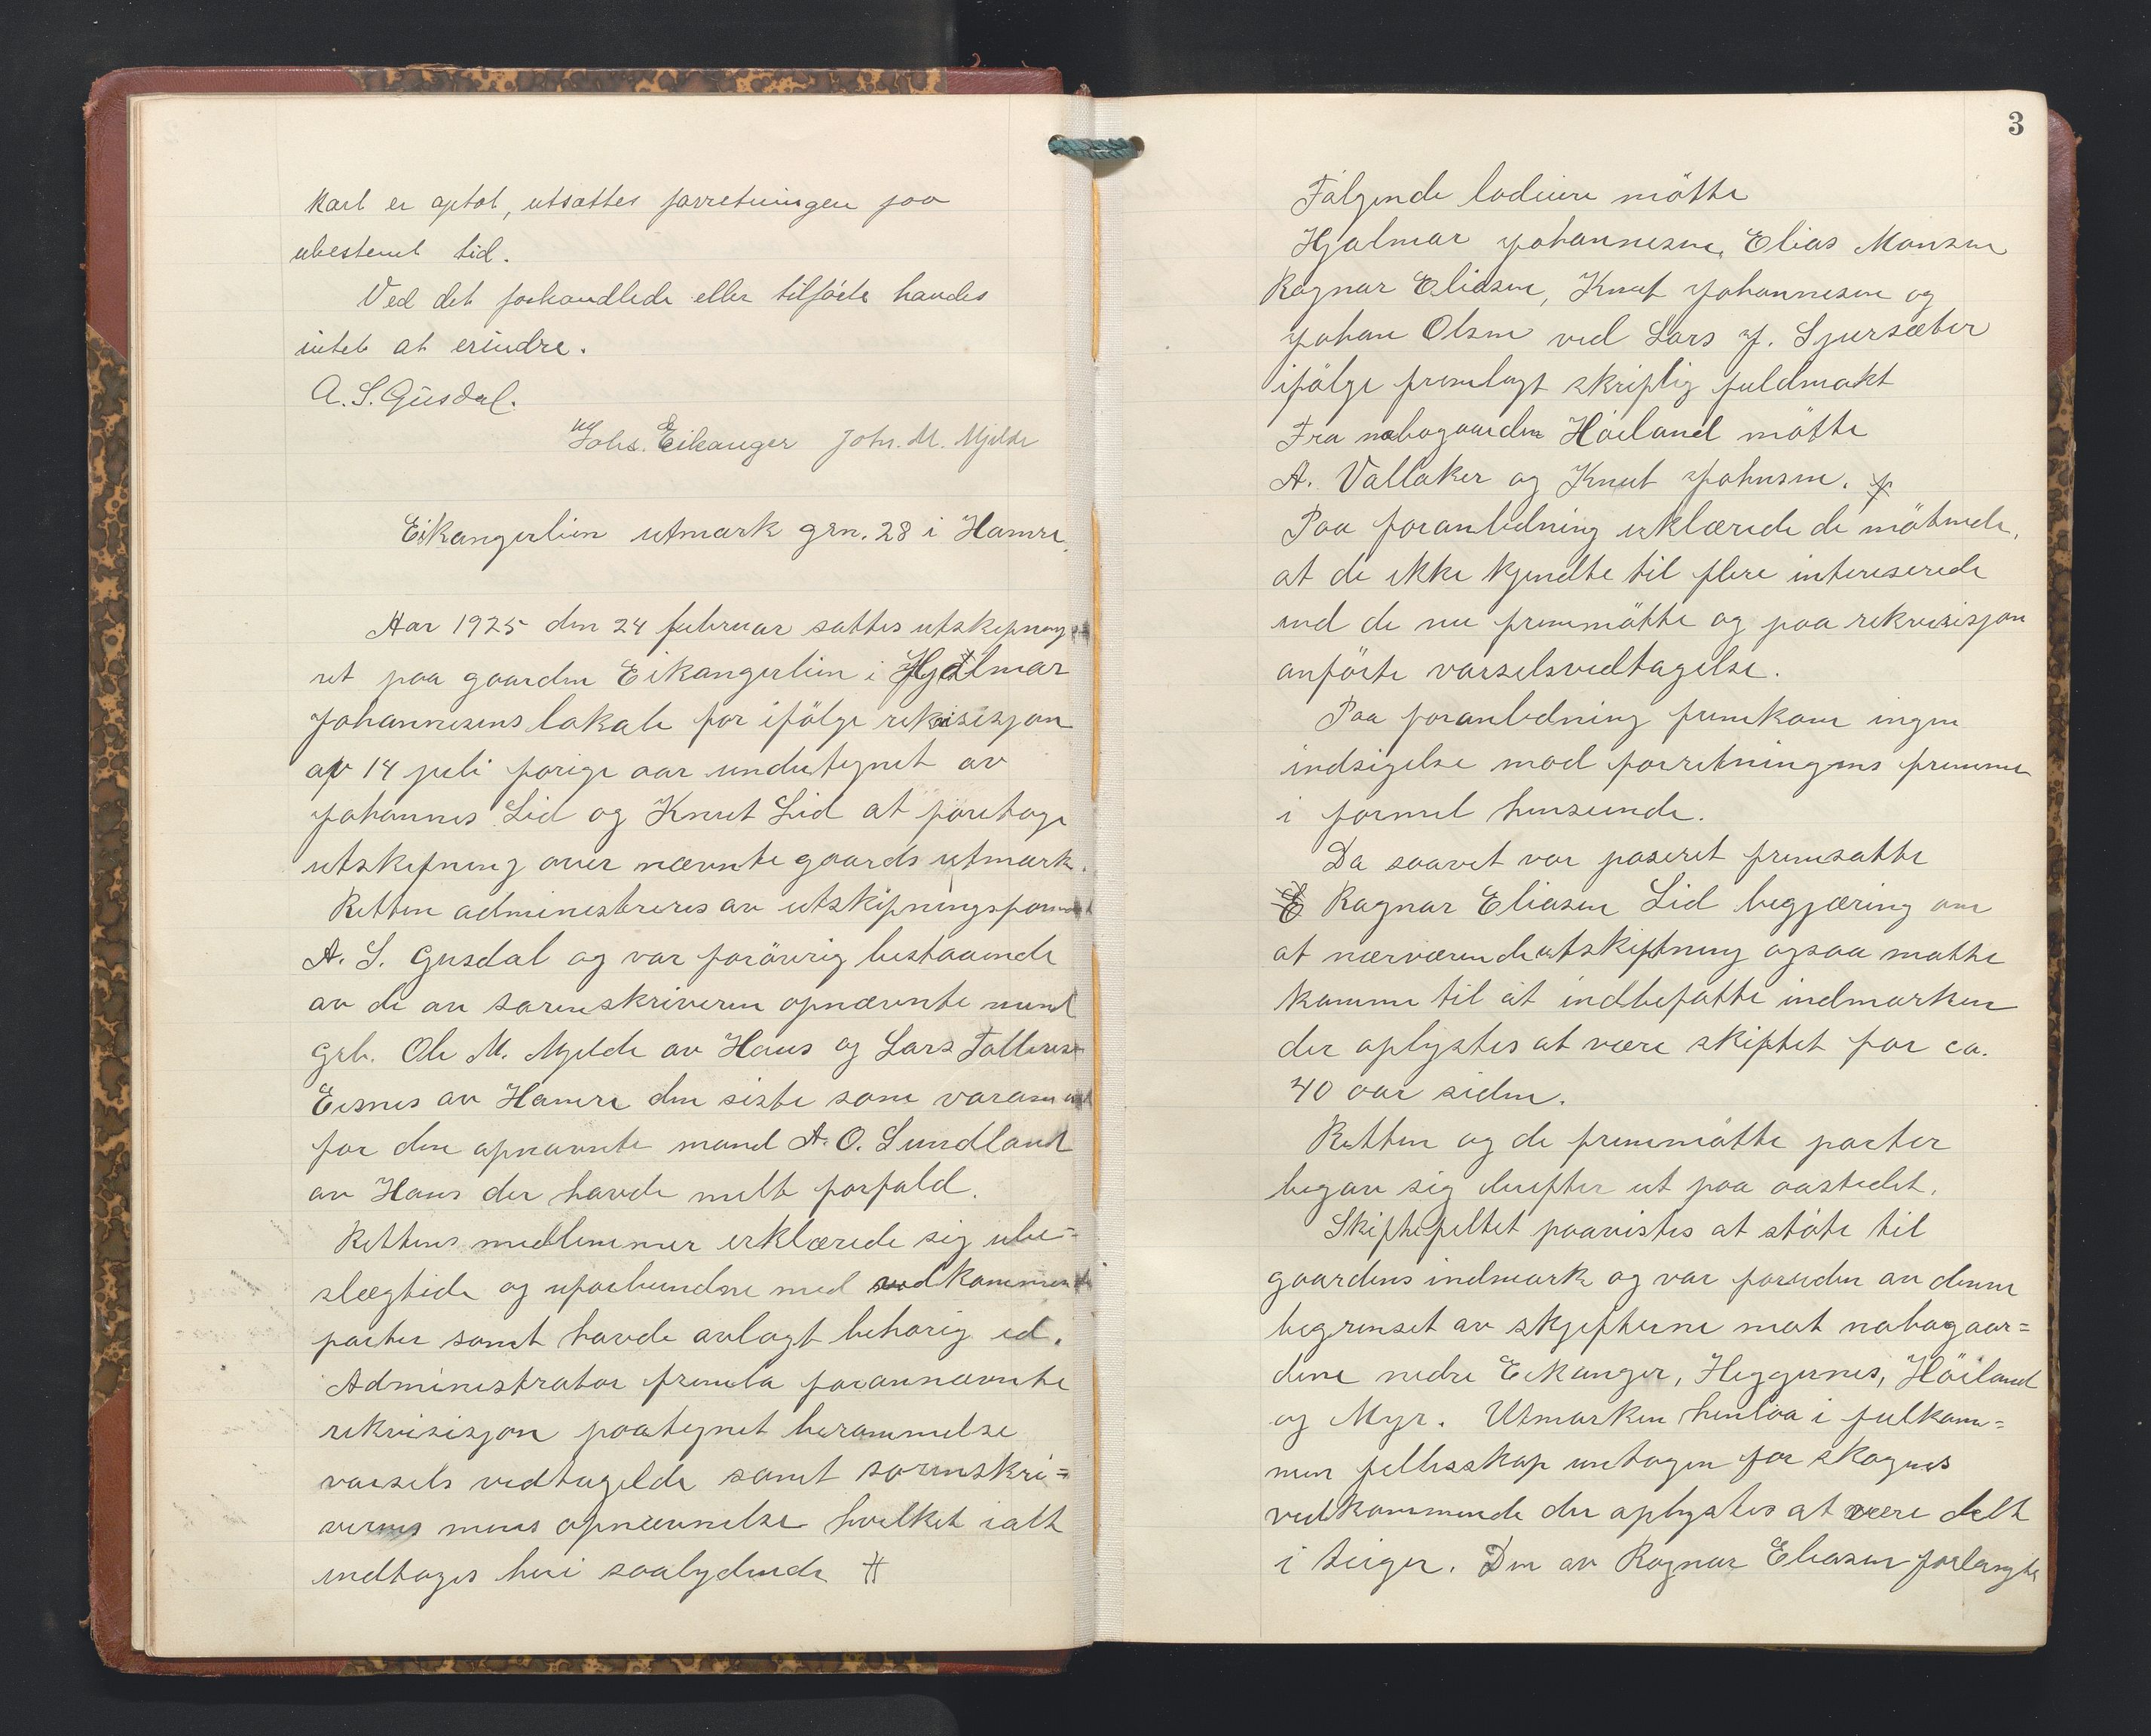 Kart er optat, utsattes forretningen paa
ubestemt tid.
Ved det forhandlede eller tilførte havdes
intet at erindre.
A. S. Gusdal.
Johs. Eikanger John. M. Mjelde
Eikangerlien utmark grn. 28 i Hamre.
Aar 1925 den 24 februar sattes utskiftnings
ret paa gaarden Eikangerlien i Hjalmar
Johannesens lokale for ifölge rekvisisjon
av 14 juli forige aar undertegnet av
Johannes Lid og Knut Lid at foretage
utskiftning over nævnte gaards utmark.
Retten administreres av utskiftningsformand
A. S. Gusdal og var forövrig bestaaende
av de av sorenskriveren opnævnte mend
grb. Ole M. Mjelde av Haus og Lars Tollevsen
Eisnes av Hamre den siste som varamand
for den opnævnte mand A. O. Lundland
av Haus der havde meldt forfald.
Rettens medlemmer erklærede sig ube=
slegtede og uforbundne med vedkommende
parter samt havde avlagt behørig ed.
Administrator fremla forannævnte
rekvisisjon paategnet berammelse
varsels vedtagelde samt sorenskri=
verens mens opnævnelse hvilket ialt
indtages heri saalydende #
3
Følgende lodeiere mötte
Hjalmar Johannesen, Elias Monsen
Ragnar Eliasen, Knut Johannesen og
Johan Olsen ved Lars J. Sjursæter
ifölge fremlagt skriftlig fuldmakt
Fra nabogaarden Höiland mötte
A. Vallaker og Knut Johnsen.
Paa foranledning erklærede de mötende,
at de ikke kjendte til flere interesserede
end de nu fremmötte og paa rekvisisjon
anförte varselsvedtagelse.
Paa foranledning fremkom ingen
indsigelse mod forretningens fremme
i formel henseende.
Da saavet var passeret fremsatte
Ragnar Eliasen Lid begjæring om
at nærværende utskiftning ogsaa maatte
komme til at indbefatte indmarken
der oplystes at være skiftet for ca.
40 aar siden.
Retten og de fremmötte parter
begav sig derefter ut paa aastedet.
Skiftefeltet paavistes at støte til
gaardens indmark og var foruden av denne
begrenset av skjefterne mot nabogaar=
dene nedre Eikanger, Heggernes, Höiland
og Myr. Utmarken henlaa i fulkom=
men fellesskap untagen for skogens
vedkommende der oplystes at være delt
i teiger. Den av Ragnar Eliasen forlangte